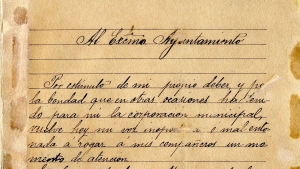 Al Excmo Ayuntamiento
Por estímulo de mi propio deber, y por
la bondad que en otras ocasiones ha teni
do para mi la corporacion municipal,
vuelve hoy mi voz e mal ento
nada a rogar a mis compañeros un mo
mento de atencion